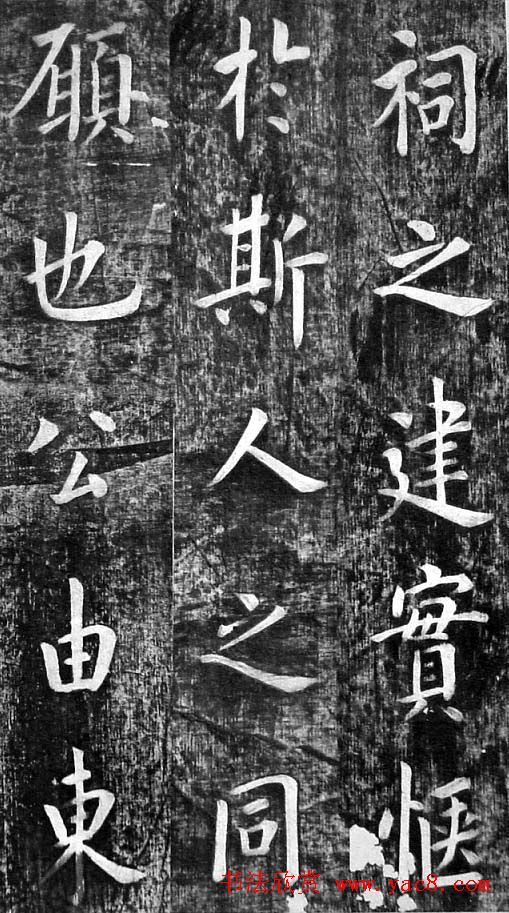 祠之建實愜
於斯人之同
願也公由東
书法欣赏 www.yac8.com